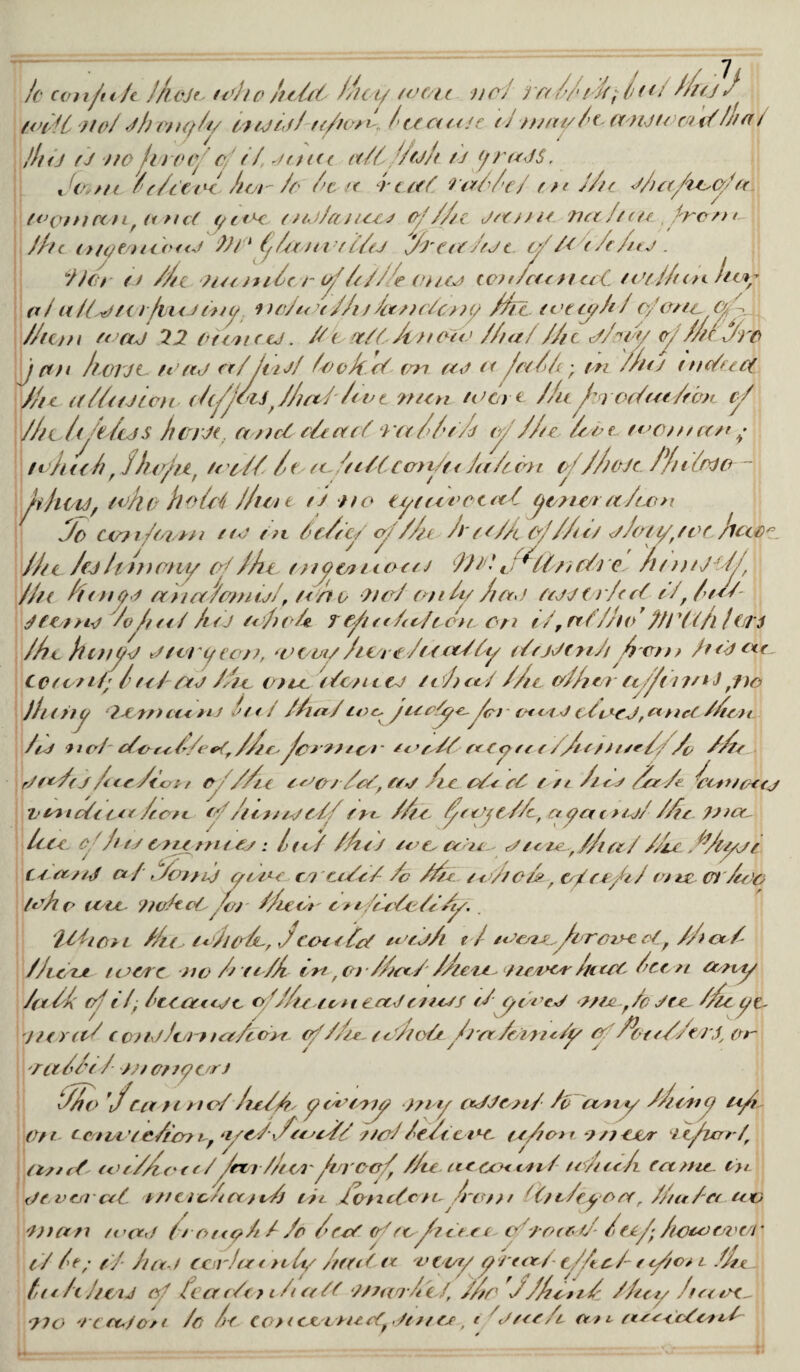 7
to confute those who held they were not rabbits; but this I
will not strongly insist upon, because it may be answered that
this is no proof of it, since all flesh is grass.
Some believe her to be a real rabbet in the shape of a
woman, and give instances of the same nature from
the ingenious Mr Glanvilles Treatise of Witches.
Nor is the number of little ones contained within her
at all surprising, notwithstanding the weight of one of
them was 22 ounces. We all know that the story of the Tro
jan horse was at first look'd on as a fable; in this indeed
the allusion differs, that live men were the production of
the lifeless horse, and dead rabbets of the live woman;
which, I hope, will be a full confutation of those Philoso-
phers, who hold there is no equivocal generation
To confirm us in belief of the truth of this story, we have
the testimony of the ingenious Mr. St Andre himself,
the kings anatomist, who not only has asserted it, but
seems to put his whole reputation on it, and tho' Mr Ahlers
the kings surgeon, very heretically dissents from his ac
count; but as the one denies what the other affirms, no
thing remains but that we judge for ourselves, and then
tis not doubted, the former will acquit himself to the
satisfaction of the world, as he did in his late famous
vindication of himself in the Gazette, against the ma-
lice of his enemies: but this we are sure, that the Physi
cians at Toms give credit to the whole, except one or two
who are noted for their infidelity.
When the whole, I could wish it were proved, that
there were no truth in, or that there never had been any
talk of it; because of the uneasiness it gives me, to see the ge-
neral consternation of the whole fraternity of Poulters, or
rabbit mongers
Tho' I cannot help giving my assent to any thing up
on conviction, yet I will not believe upon meer report,
and without further proof, the account which came in
several merchants in London from Antegoa, that a wo
man was brought to bed of a piece of roast beef; however
it be; it has certainly had a very great effect upon the
butchers of Leadenhall market, tho' I think they have
no reason to be concerned, since, if such an accident